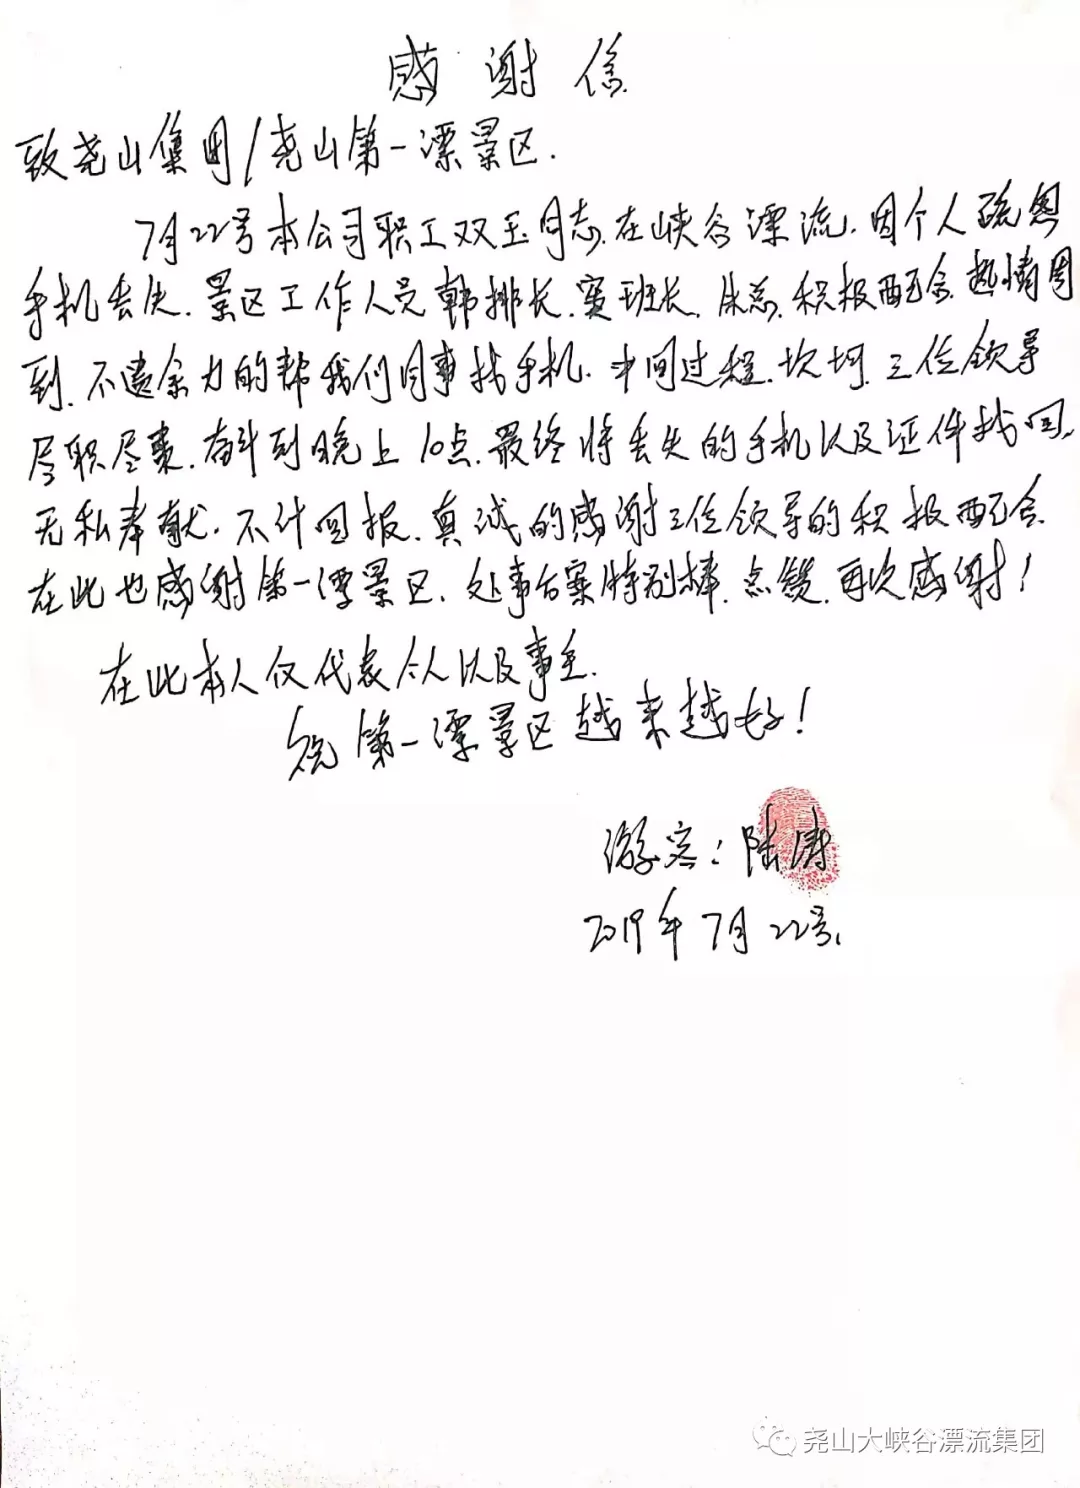 感谢信
致尧山集团/尧山第一漂景区.
7月22号本公司职工双玉同志.在峡谷漂流.因个人疏忽
手机丢失.景区工作人员韩排长.窦班长.朱总.积极配合.热情周
到.不遗余力的帮我们同事找手机.中间过程.坎坷.三位领导
尽职尽责.奋斗到晚上10点.最终将丢失的手机以及证件找回.
无私奉献.不计回报.真诚的感谢三位领导的积极配合.
在此也感谢第一漂景区.处事方案特别棒.点赞.再次感谢!
在此本人仅代表个人以及事主.
祝第一漂景区越来越好!
游客:陆涛
2019年7月22号.
尧山大峡谷漂流集团